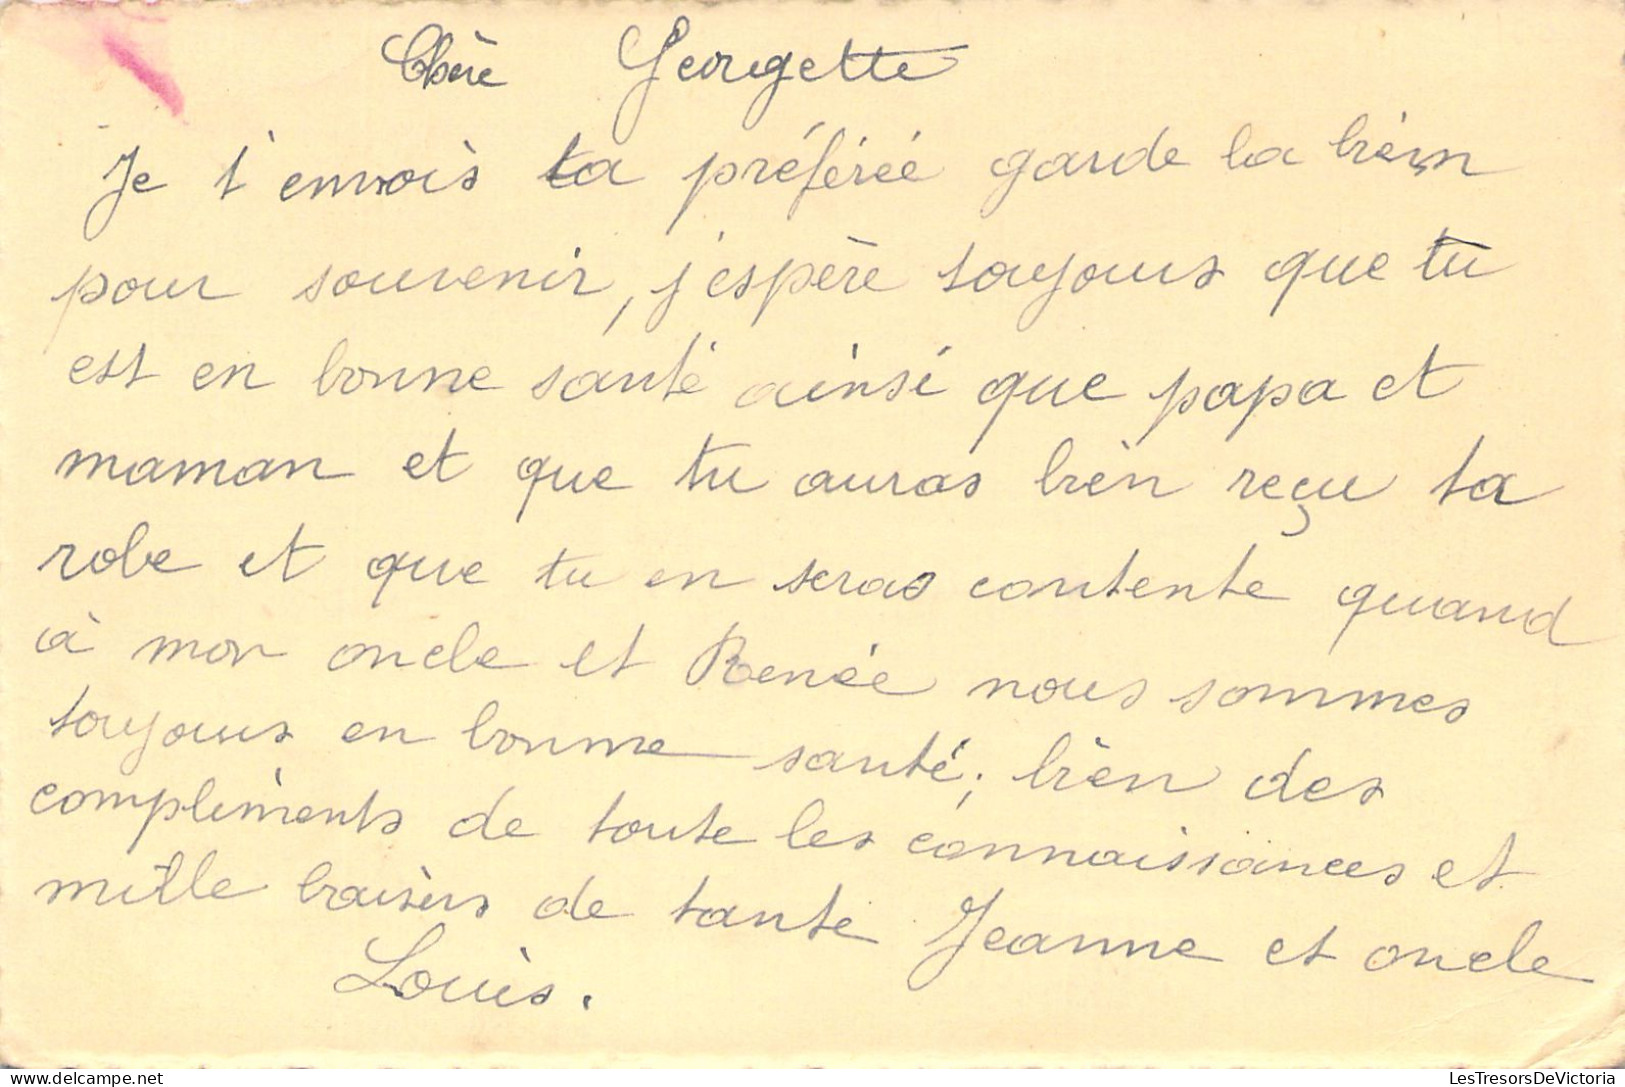 Chère Georgette
Je t'envois ta préférée garde la bien
pour souvenir, j'espère toujours que tu
est en bonne santé ainsi que papa et
maman et que tu auras bien reçu ta
robe et que tu en seras contente quand
à mon oncle et Renée nous sommes
toujours en bonne santé, bien des
compliments de toute les connaissances et
mille baisers de tante Jeanne et oncle
Louis.
LesTresorsDeVictoria